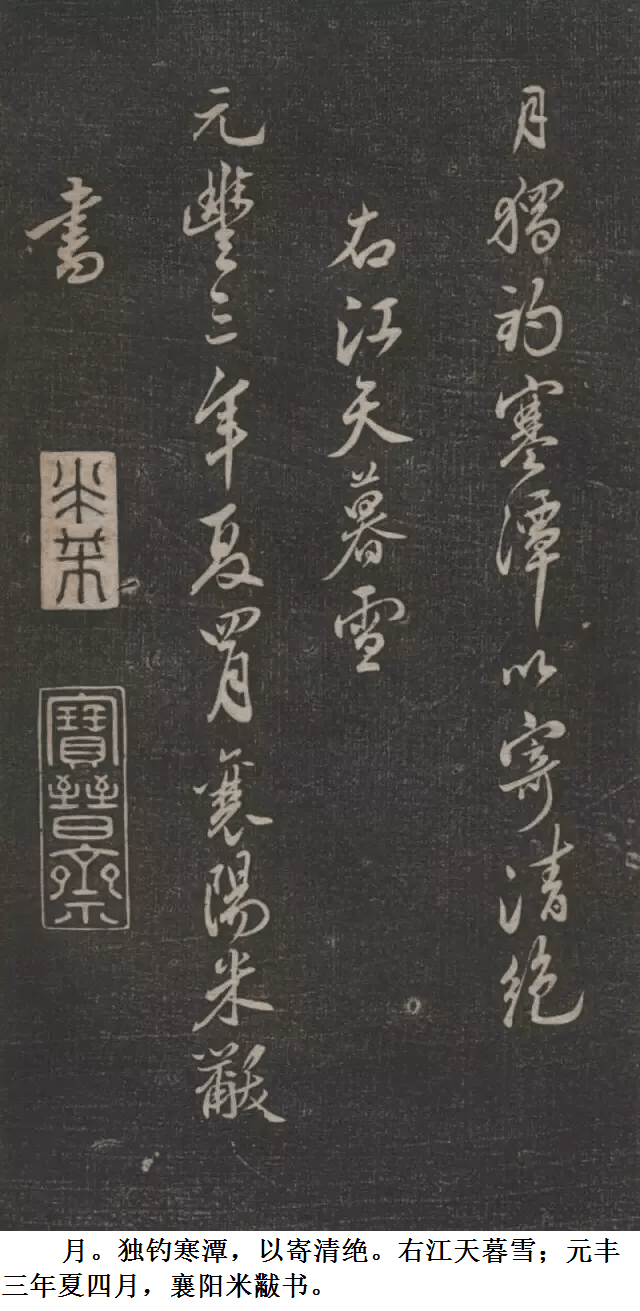 月獨釣寒潭以寄清絶
右江天暮雪
元豐三年夏四月襄陽米黻
書
米芾
寶晉齋
月。独钓寒潭，以寄清绝。右江天暮雪；元丰
三年夏四月，襄阳米黻书。